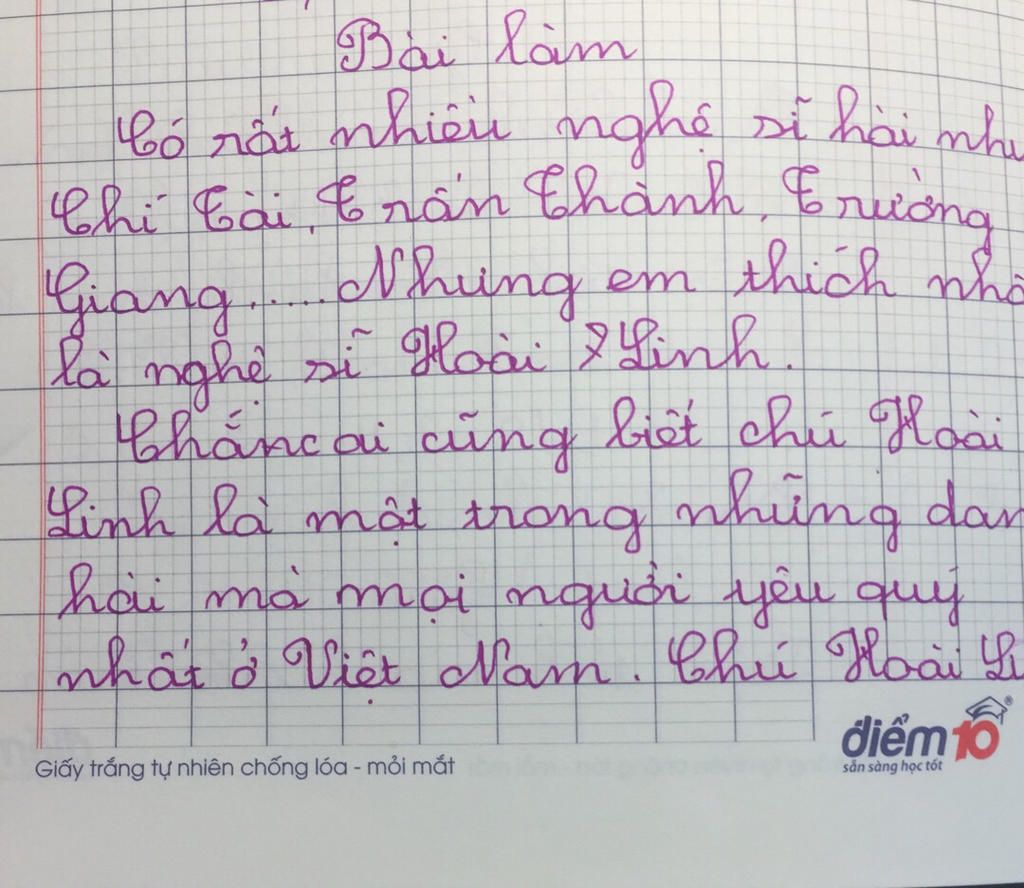 Bài làm
Có rất nhiều nghệ sĩ hài như
Chí Tài, Trấn Thành, Trường
Giang.....Nhưng em thích nhấ
là nghệ sĩ Hoài Linh.
Chắc ai cũng biết chú Hoài
Linh là một trong những dan
hài mà mọi người yêu quý
nhất ở Việt Nam. Chú Hoài Li
Giấy trắng tự nhiên chống lóa - mỏi mắt
điểm 10
sẵn sàng học tốt